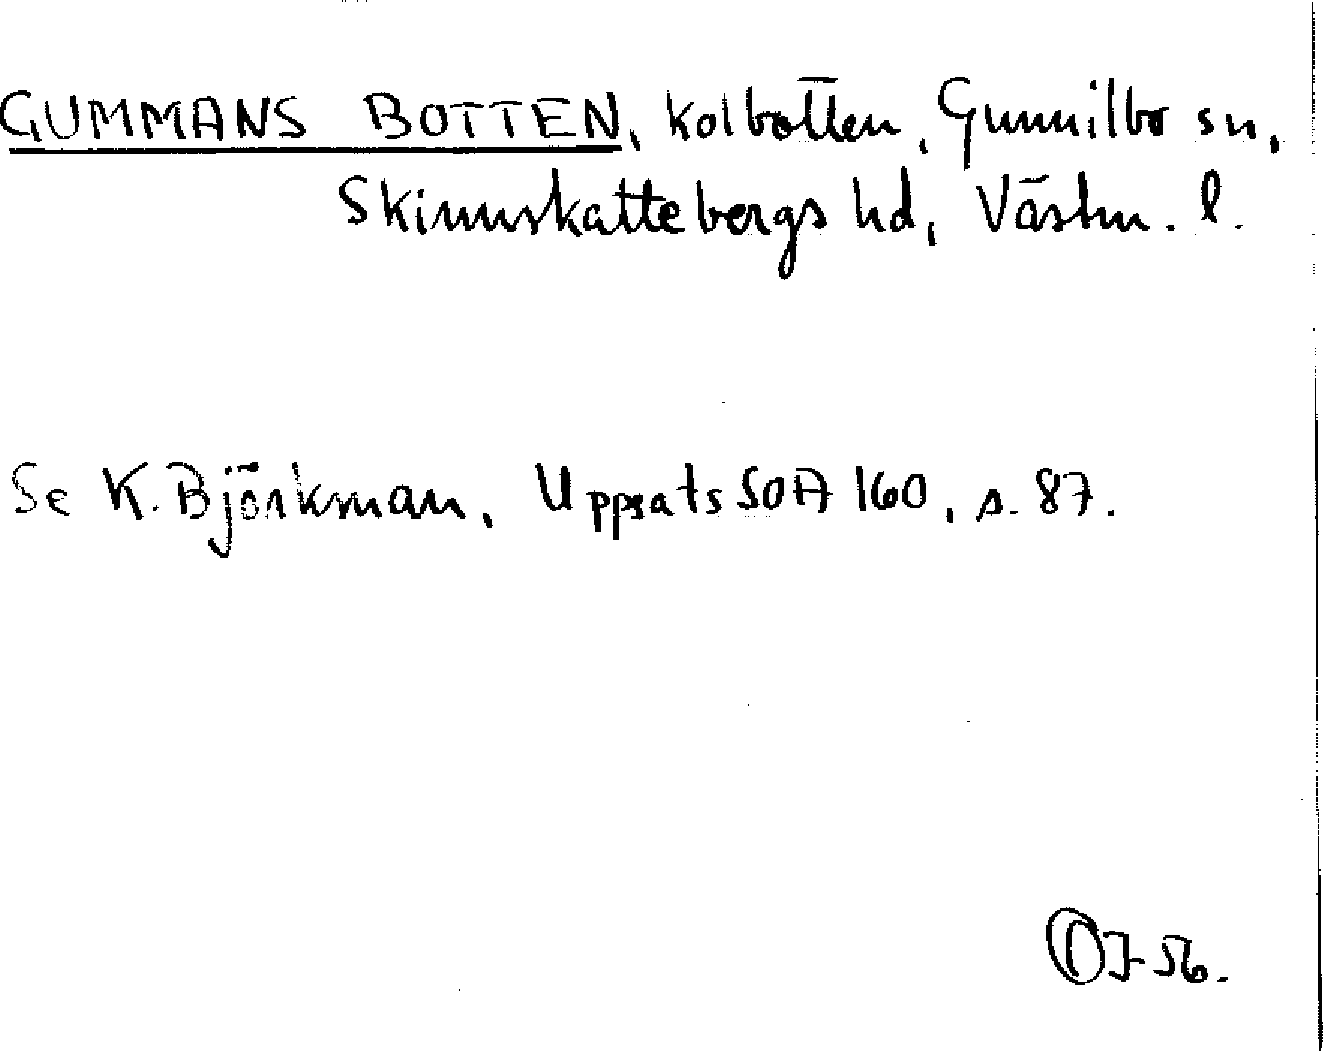 GUMMANS BOTTEN, kolbotten, Gunnilbo sn,
Skinnskattebergs hd, Västm. l.
Se K. Björkman, Uppsats SOA 160, s. 87.
OJ-56.